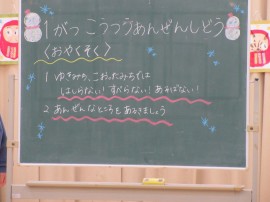 1がつ こうつうあんぜんしどう
〈おやくそく〉
1 ゆきみち、こおったみちでは
はしらない!すべらない!あわてない!
2 あんぜんなところをあるきましょう